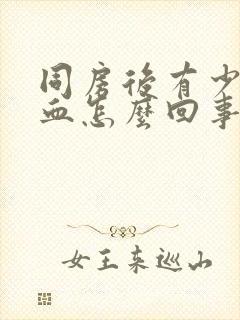 同房后有少
血怎麼回事
女王来巡山